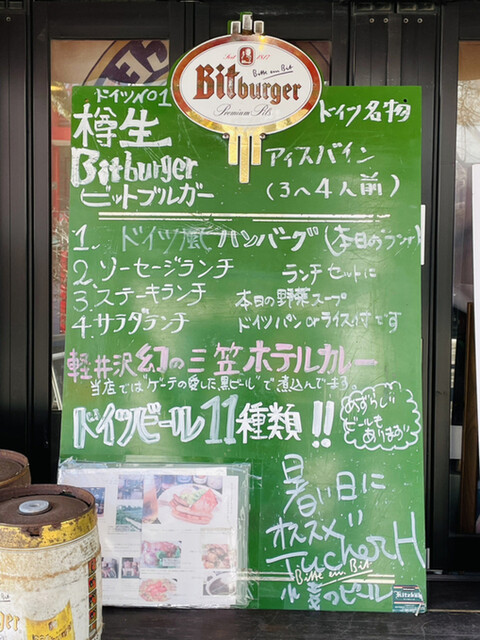 Seit 1817
Bitte ein Bit
Bitburger
Premium Pils
ドイツNO1
樽生
Bitburger
ビットブルガー
ドイツ名物
アイスバイン
(3〜4人前)
1. ドイツ風ハンバーグ(本日のランチ)
2. ソーセージランチ
3. ステーキランチ
4. サラダランチ
ランチセットに
本日の野菜スープ
ドイツパンorライス付です
軽井沢幻の三笠ホテルカレー
当店では"ゲーテの愛した黒ビール"で煮込んでます。
ドイツビール11種類!!
めずらしい
ビールも
あります!!
暑い日に
オススメ!!
TucherH
Bitte ein Bit
小麦のビール